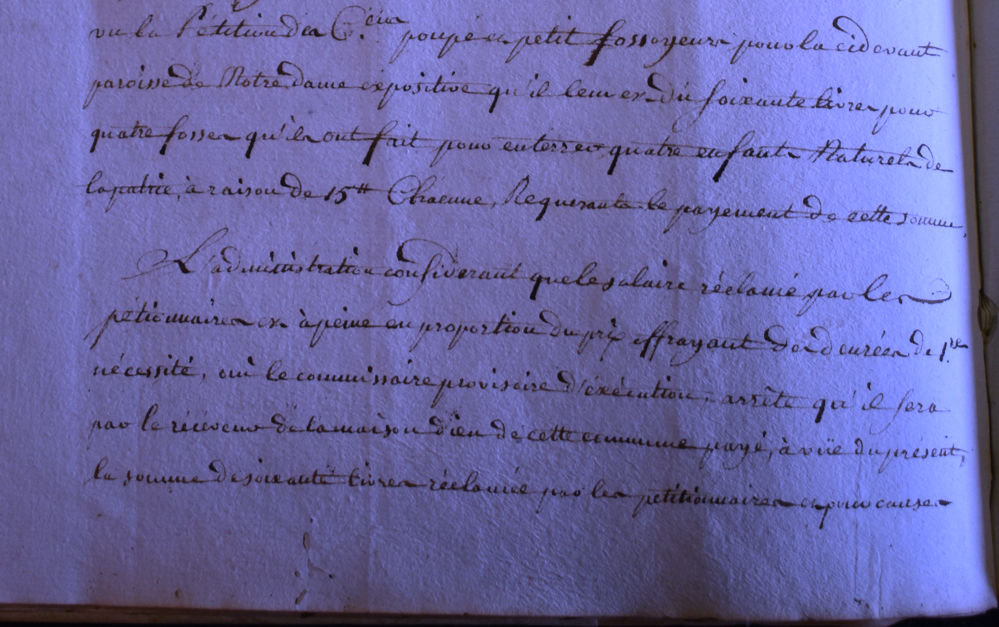 vu la Pétition des C.ens poupé et petit fossoyeurs pour la cidevant
paroisse de Notre dame expositive qu'il leur est dû soixante livres pour
quatre fosses qu'ils ont fait pour enterrer quatre enfants Naturels de
la patrie, à raison de 15tt Chacune, Requerants le payement de cette somme.
L'administration considerant que le salaire réclamé par les
pétionnaires est à peine en proportion du prix effrayant des denrées de 1.re
nécessité, oui le commissaire provisoire d'éxécution, arrête qu'il sera
par le réceveur de la maison d'ieu de cette commune payé, à vüe du présent,
la somme de soixante livres réclamée par les pétitionnaires et pour causes